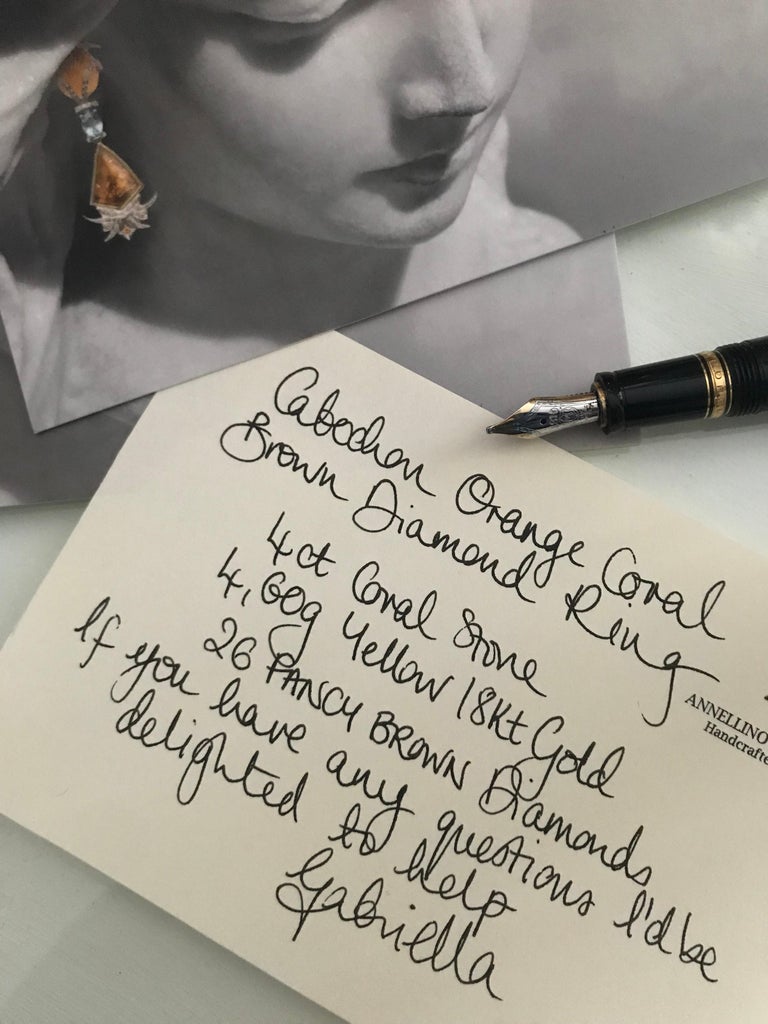 Cabochon Orange Coral
Brown Diamond Ring
4ct Coral Stone
4,60g Yellow 18Kt Gold
26 FANCY BROWN Diamonds
If you have any questions I'd be
delighted to help
Gabriella
ANNELLINO
Handcrafte